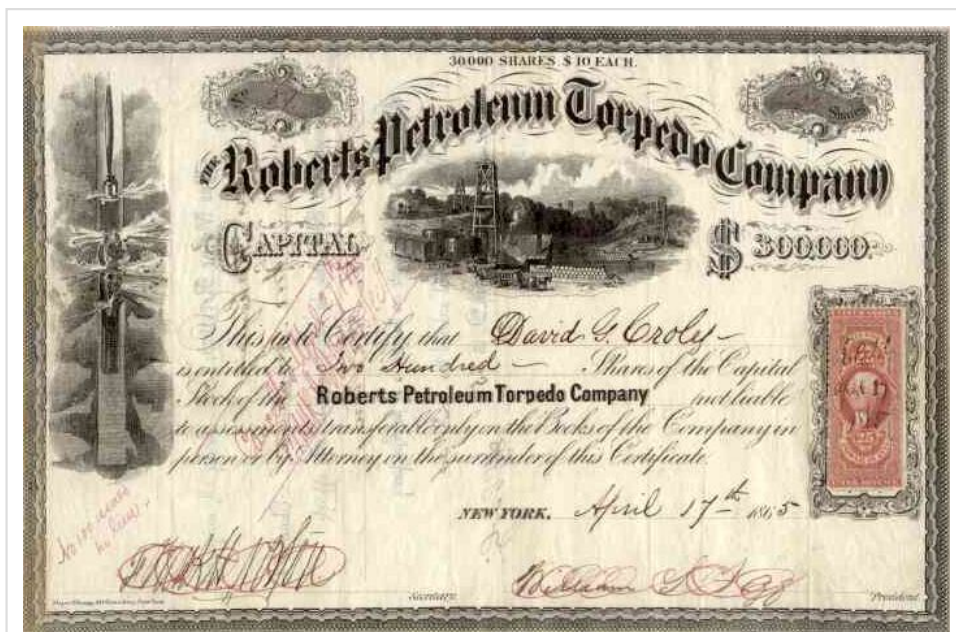 30000 SHARES $ 10 EACH.
No
Shares
THE Roberts Petroleum Torpedo Company
CAPITAL $ 300.000.
This is to Certify that David G. Croly
is entitled to Two Hundred Shares of the Capital
Stock of the Roberts Petroleum Torpedo Company not liable
to assessments transferable only on the Books of the Company in
person or by Attorney on the surrender of this Certificate.
NEW YORK, April 17th 1865
Secretary. President.